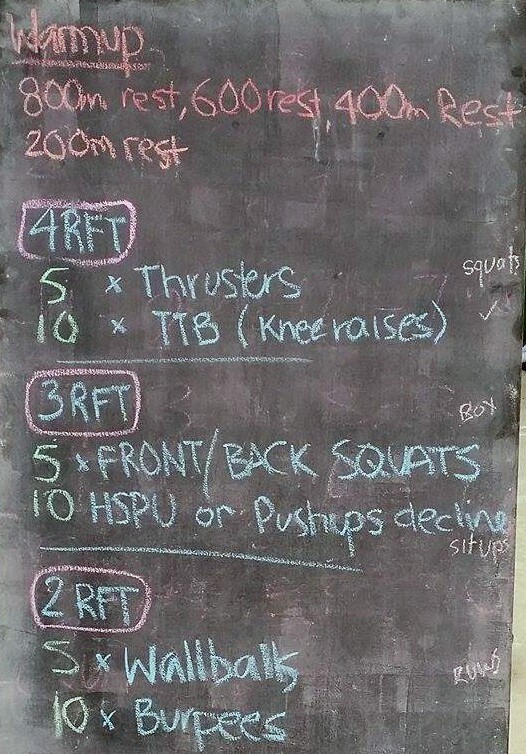 Warmup
800m rest, 600 rest, 400m Rest
200m rest
4RFT
squats
5 x Thrusters
10 x TTB (Kneeraises)
3RFT
Box
5 x FRONT/BACK SQUATS
10 HSPU or Pushups decline
situps
2 RFT
5 x Wallballs
RUNS
10 x Burpees